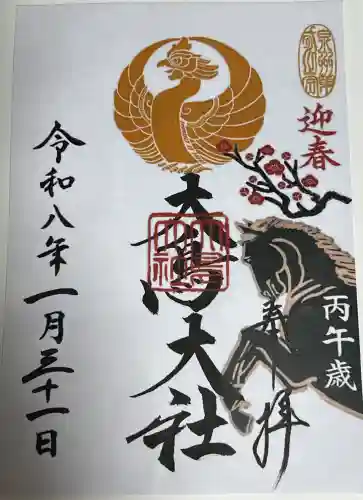 迎春
丙午歳
奉拝
大鳥大社
令和八年一月三十一日